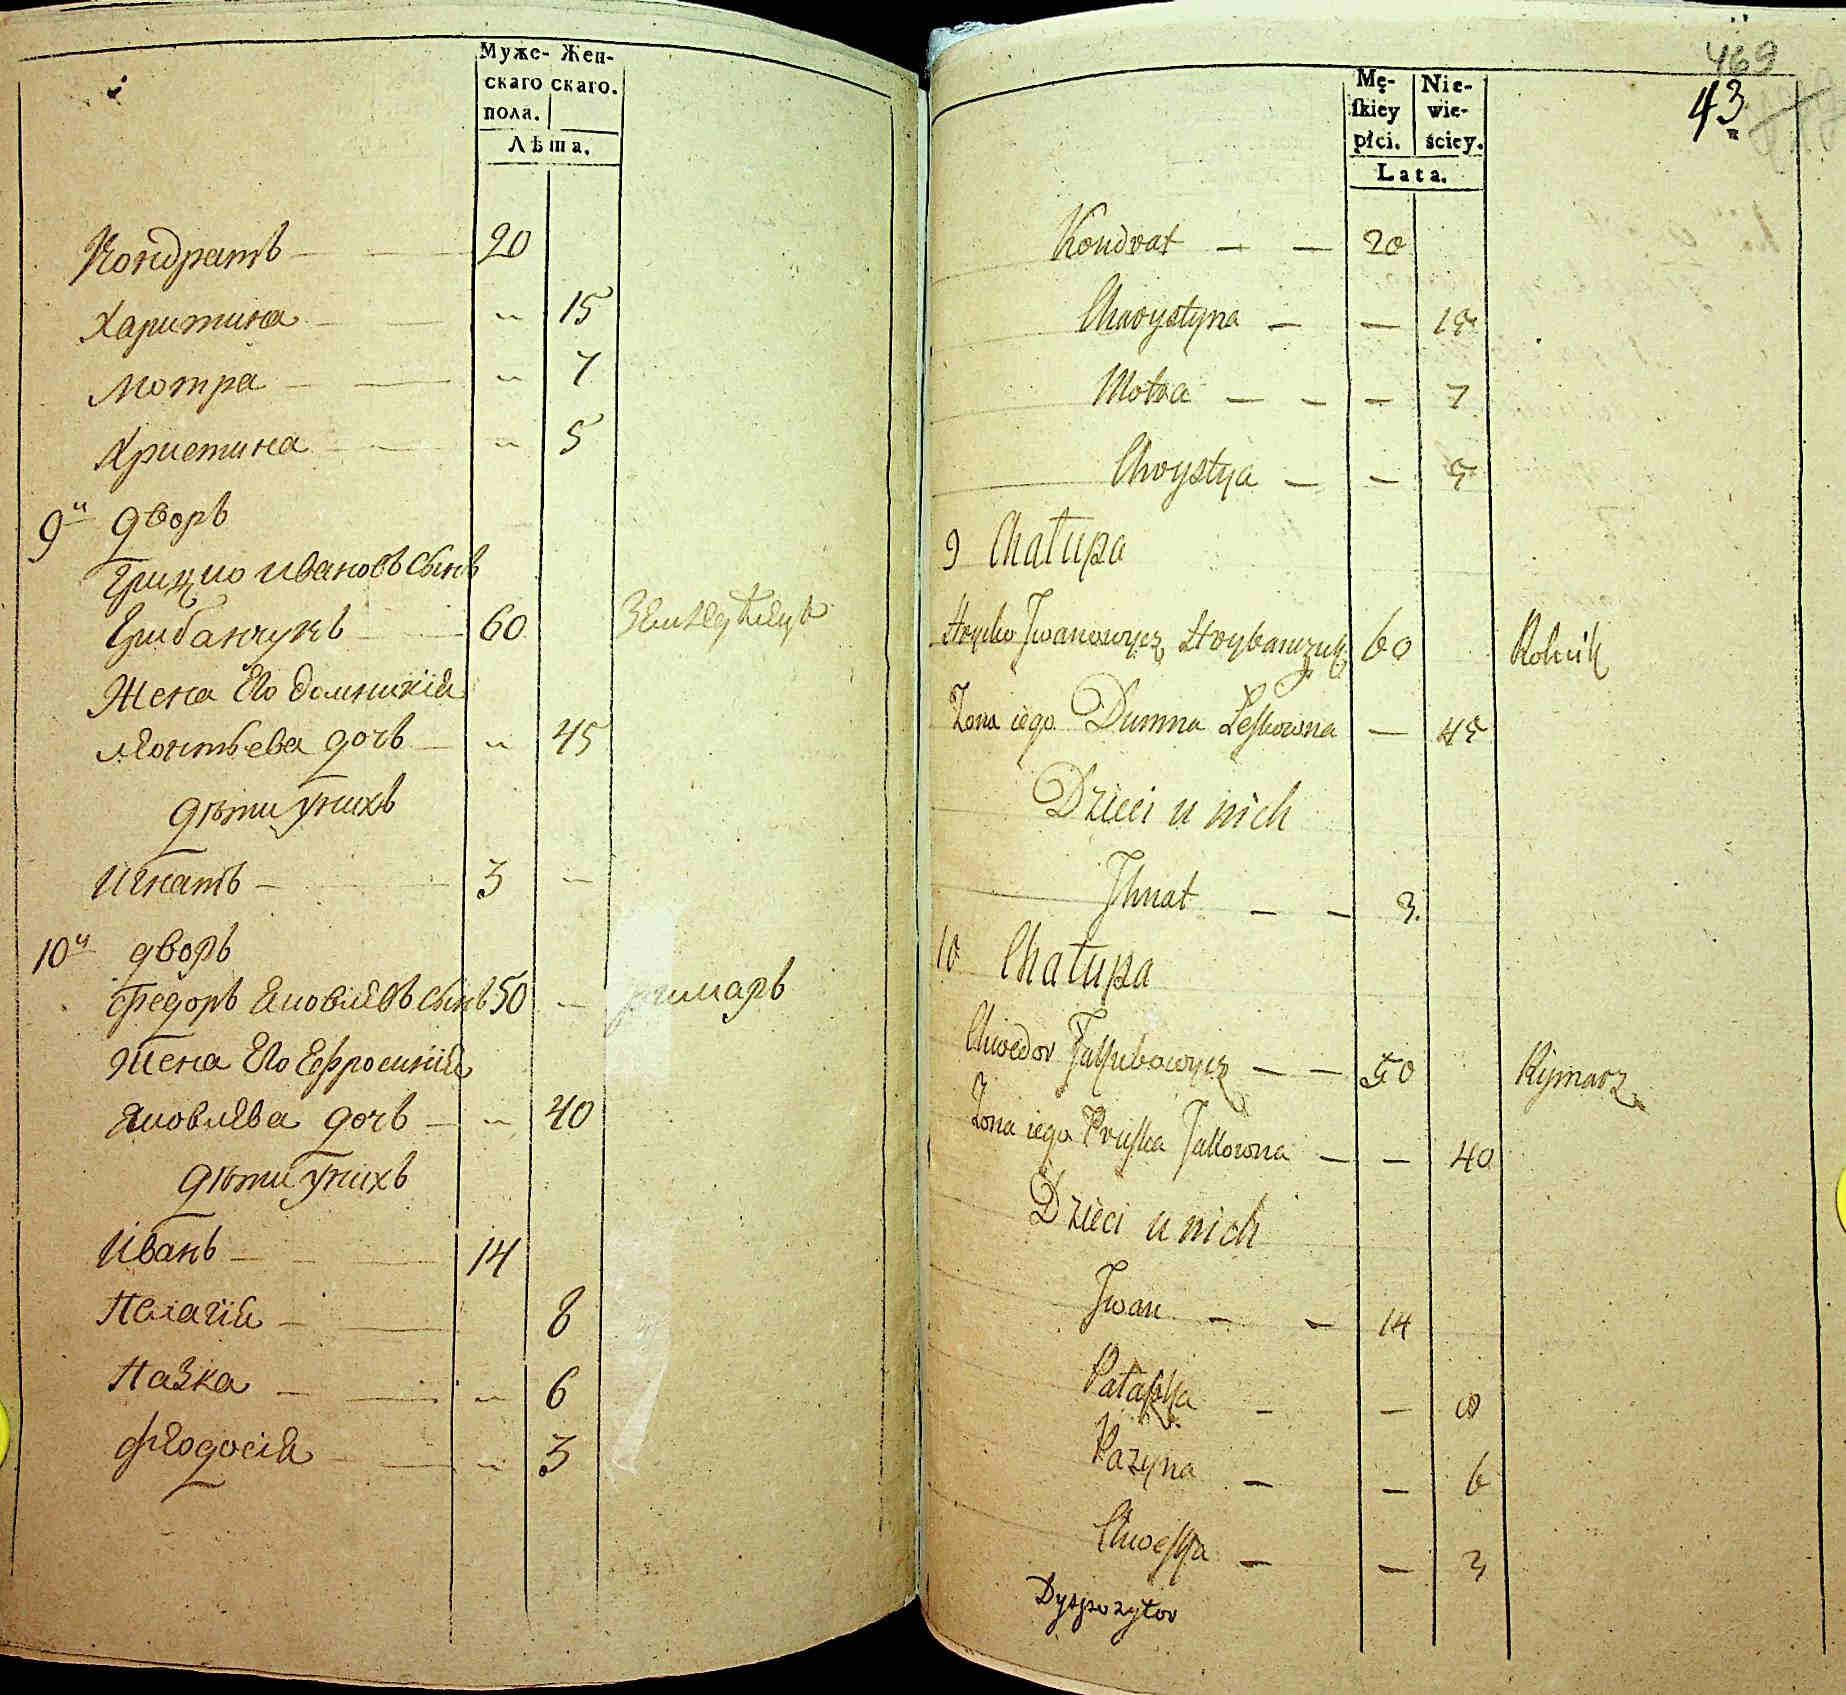 Муже- Жен-
скаго скаго.
пола.
Лѣта.
Кондратъ — — 20
Харитина — — „ 15
Мотра — — „ 7
Христина — — „ 5
9й дворъ
Грицко Ивановъ Сынъ
Грибанчукъ — 60 Земледѣлецъ
Жена Его Домникия
Леонтьева дочъ — „ 45
Дѣти унихъ
Игнатъ — — 3 —
10й дворъ
Федоръ Яковлевъ Сынъ 50 — римаръ
Жена Его Ефросинія
Яковлева дочъ — „ 40
Дѣти унихъ
Иванъ — — 14
Пелагія — — 8
Пазка — — „ 6
Феодосія — — „ 3
469
43
Mę- Nie-
skiey wie-
płci. ściey.
Lata.
Kondrat — — 20
Charystyna — — 15
Motra — — — 7
Chrystya — — 5
9 Chałupa
Hrycko Jwanowycz Hrybanczuk 60 Rolnik
Zona iego Dumna Leskowna — 45
Dzieci u nich
Jhnat — — 3.
10 Chałupa
Chwedor Jakubowycz — — 50 Rymarz
Zona iego Pruska Jakowna — — 40
Dzieci u nich
Jwan — — 14
Pałaszka — — 8
Pazyna — — 6
Chweska — — 3
Dyspozytor